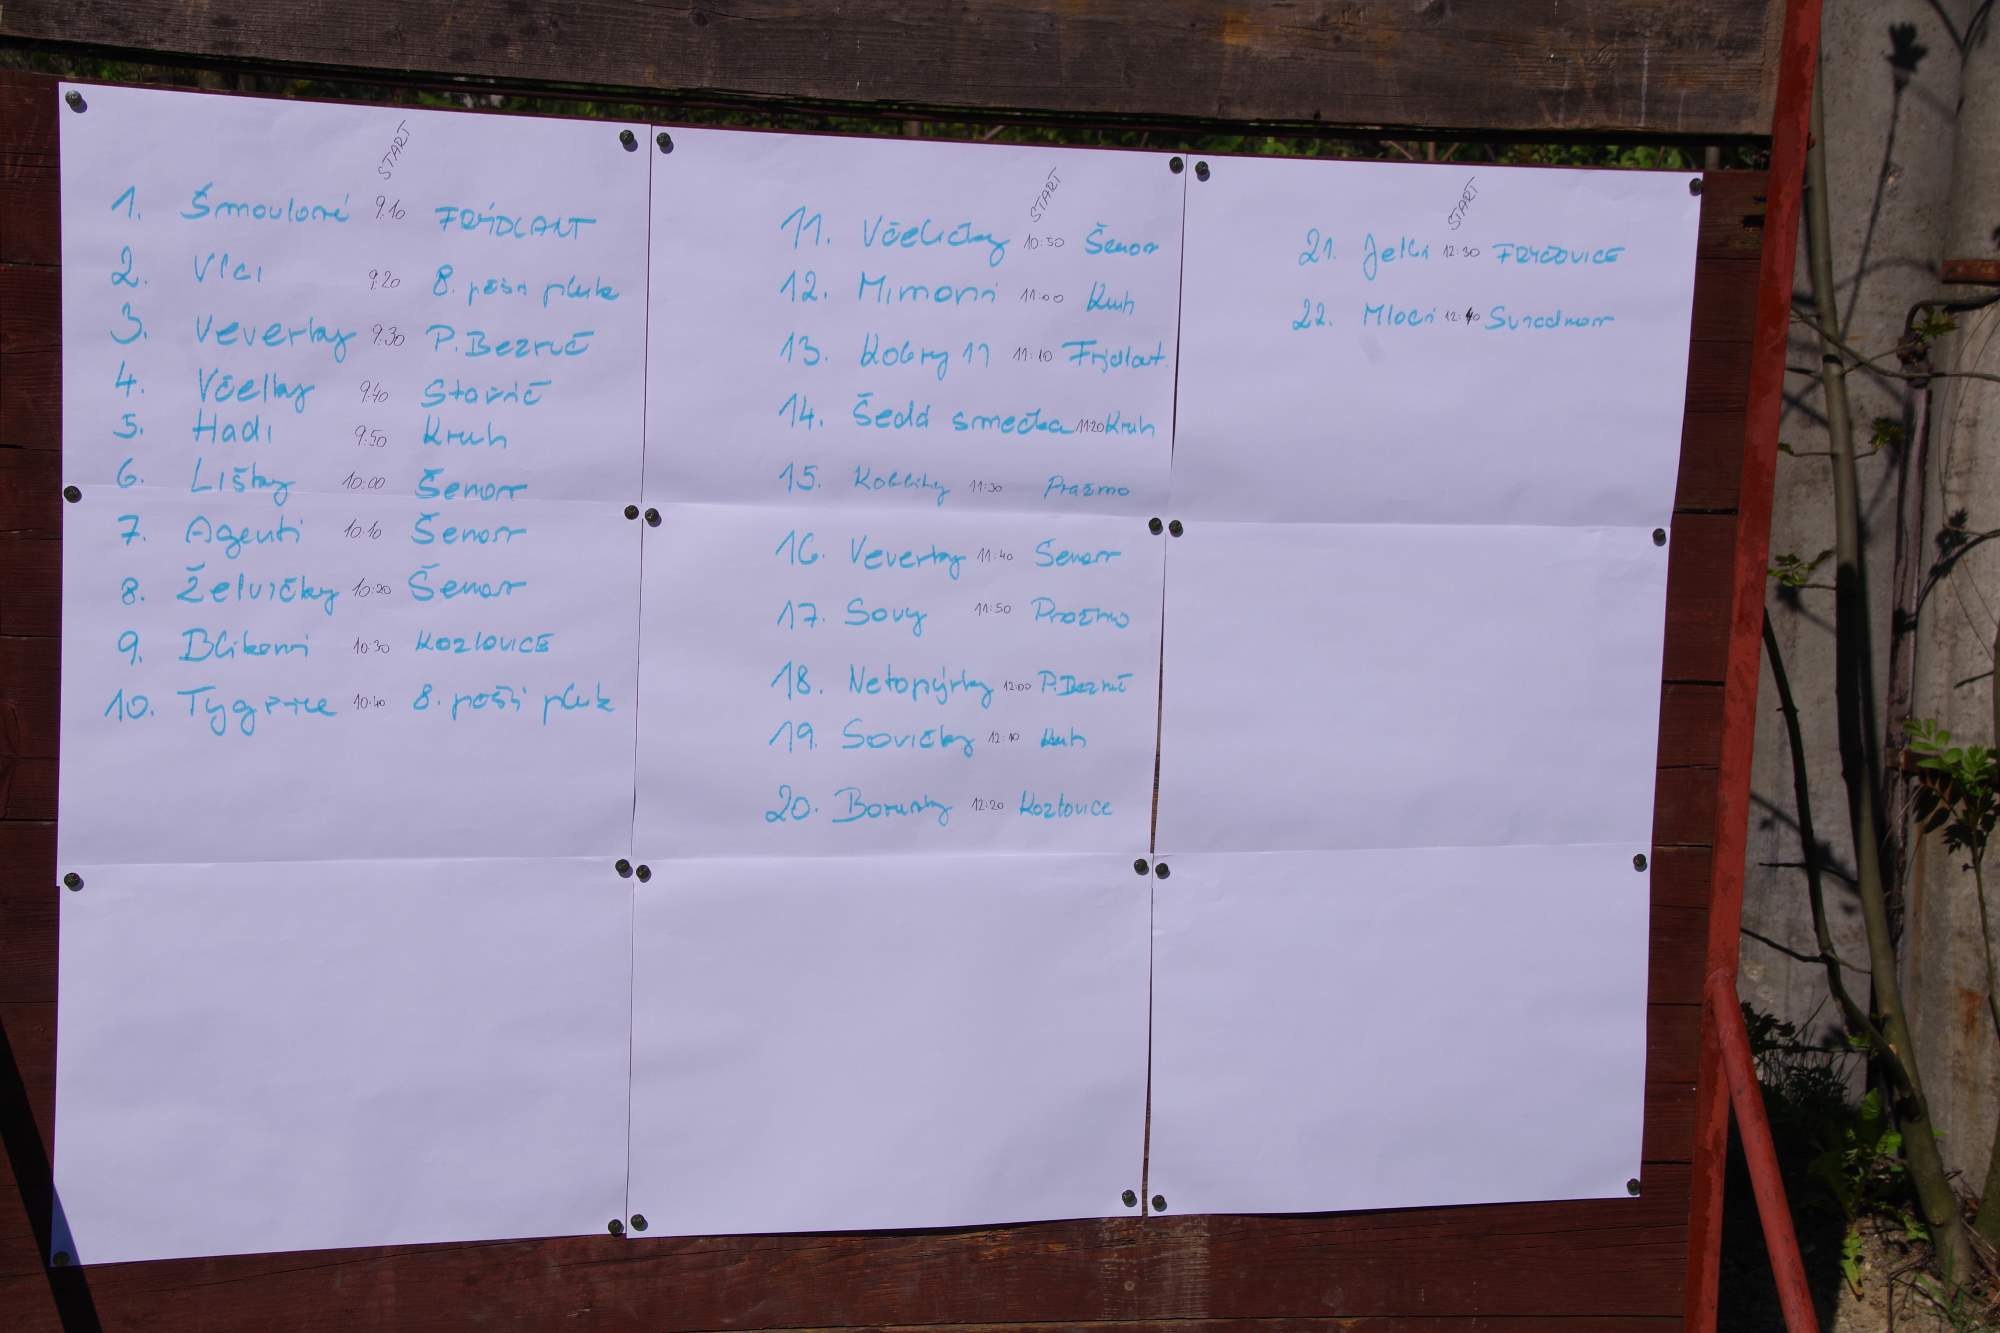 START
1. Šmoulové 9:10 FRÝDLANT
2. Vlci 9:20 8. pěší pluk
3. Veverky 9:30 P. Bezruč
4. Včelky 9:40 Stovič
5. Hadi 9:50 Kruh
6. Lišky 10:00 Šenov
7. Agenti 10:10 Šenov
8. Želvičky 10:20 Šenov
9. Blikoni 10:30 KOZLOVICE
10. Tygřice 10:40 8. pěší pluk
START
11. Včeličky 10:50 Šenov
12. Mimoni 11:00 Kruh
13. Kobry 11 11:10 Frýdlant
14. Šedá smečka 11:20 Kruh
15. Koblihy 11:30 Pražmo
16. Veverky 11:40 Šenov
17. Sovy 11:50 Pražmo
18. Netopýrky 12:00 P. Bezruč
19. Sovičky 12:10 Kruh
20. Borůvky 12:20 Kozlovice
START
21. Jelki 12:30 FRYČOVICE
22. Mloci 12:40